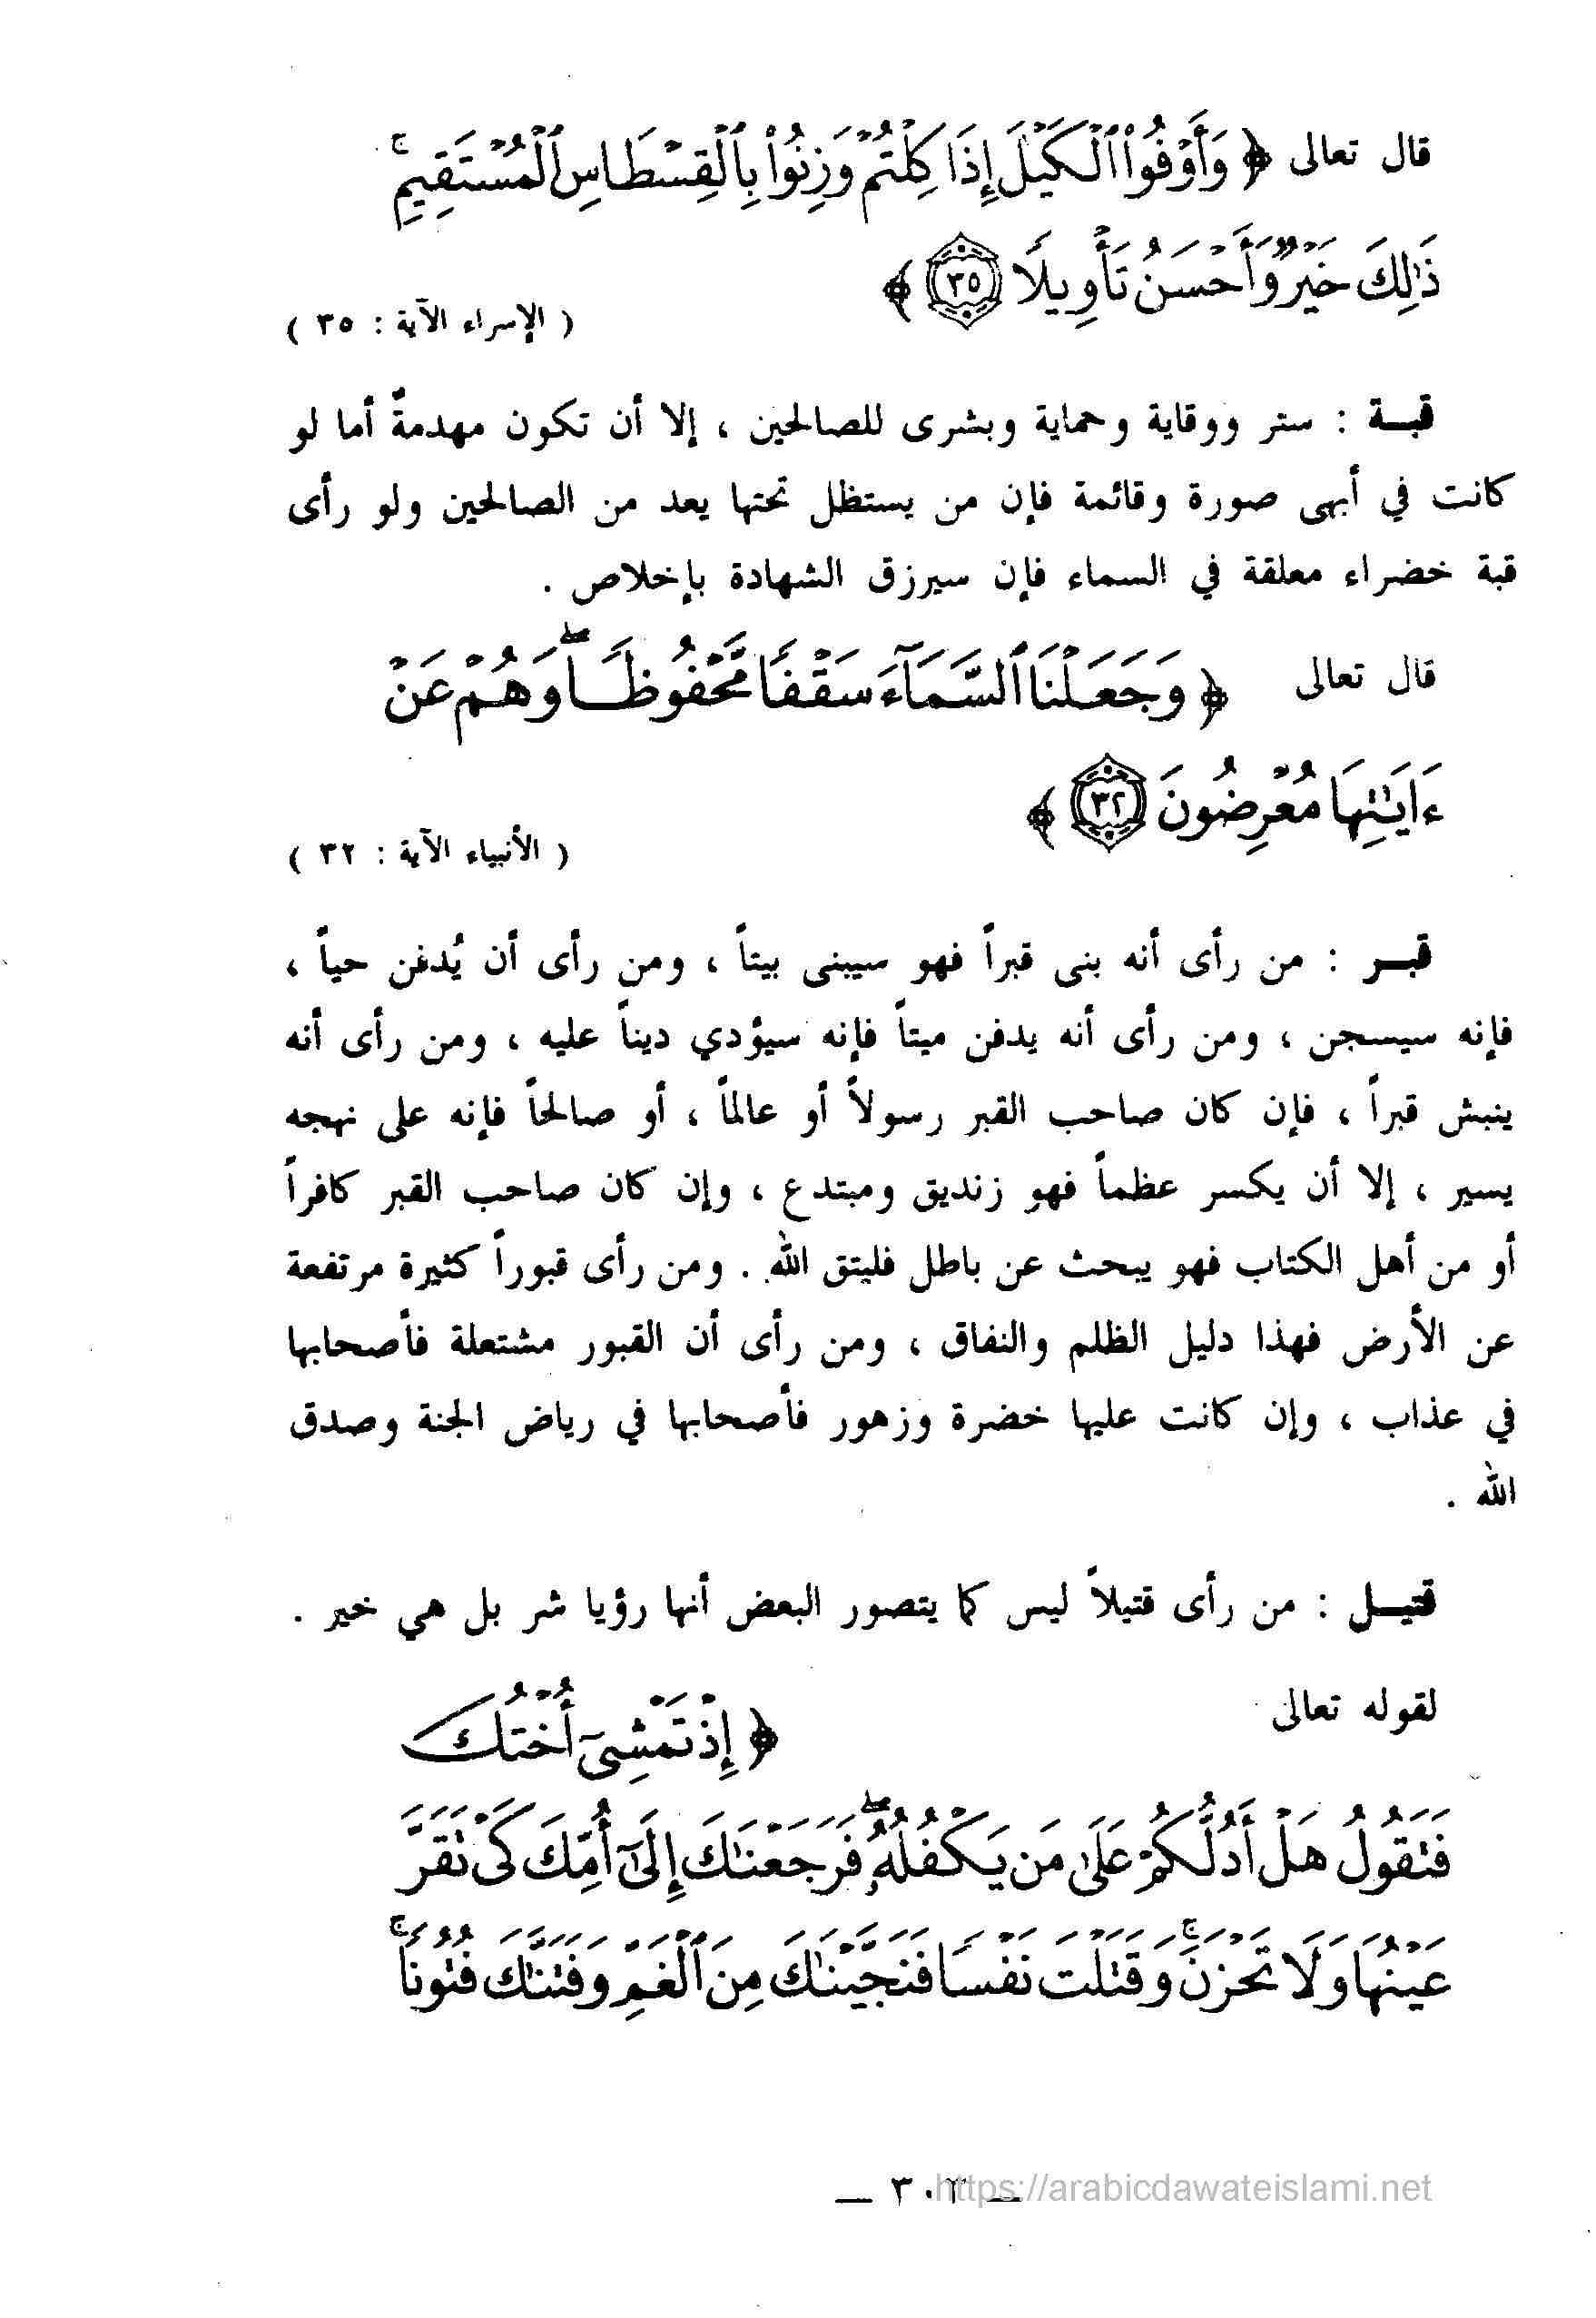 قال تعالى ﴿ وَأَوْفُوا۟ ٱلْكَيْلَ إِذَا كِلْتُمْ وَزِنُوا۟ بِٱلْقِسْطَاسِ ٱلْمُسْتَقِيمِ ۚ
ذَٰلِكَ خَيْرٌ وَأَحْسَنُ تَأْوِيلًا ٣٥ ﴾
( الإسراء الآية : ٣٥ )
قبـة : ستر ووقاية وحماية وبشرى للصالحين ، إلا أن تكون مهدمةً أما لو
كانت في أبهى صورة وقائمة فإن من يستظل تحتها يعد من الصالحين ولو رأى
قبة خضراء معلقة في السماء فإن سيرزق الشهادة بإخلاص .
قال تعالى ﴿ وَجَعَلْنَا ٱلسَّمَآءَ سَقْفًا مَّحْفُوظًا ۖ وَهُمْ عَنْ
ءَايَـٰتِهَا مُعْرِضُونَ ٣٢ ﴾
( الأنبياء الآية : ٣٢ )
قبـر : من رأى أنه بنى قبراً فهو سيبنى بيتاً ، ومن رأى أن يُدفن حياً ،
فإنه سيسجن ، ومن رأى أنه يدفن ميتاً فإنه سيؤدي ديناً عليه ، ومن رأى أنه
ينبش قبراً ، فإن كان صاحب القبر رسولاً أو عالماً ، أو صالحاً فإنه على نهجه
يسير ، إلا أن يكسر عظماً فهو زنديق ومبتدع ، وإن كان صاحب القبر كافراً
أو من أهل الكتاب فهو يبحث عن باطل فليتق الله . ومن رأى قبوراً كثيرة مرتفعة
عن الأرض فهذا دليل الظلم والنفاق ، ومن رأى أن القبور مشتعلة فأصحابها
في عذاب ، وإن كانت عليها خضرة وزهور فأصحابها في رياض الجنة وصدق
الله .
قتيـل : من رأى قتيلاً ليس كما يتصور البعض أنها رؤيا شر بل هي خير .
لقوله تعالى ﴿ إِذْ تَمْشِىٓ أُخْتُكَ
فَتَقُولُ هَلْ أَدُلُّكُمْ عَلَىٰ مَن يَكْفُلُهُۥ ۖ فَرَجَعْنَـٰكَ إِلَىٰٓ أُمِّكَ كَىْ تَقَرَّ
عَيْنُهَا وَلَا تَحْزَنَ ۚ وَقَتَلْتَ نَفْسًا فَنَجَّيْنَـٰكَ مِنَ ٱلْغَمِّ وَفَتَنَّـٰكَ فُتُونًا ۚ
— ٣٠٢ —
https://arabicdawateislami.net